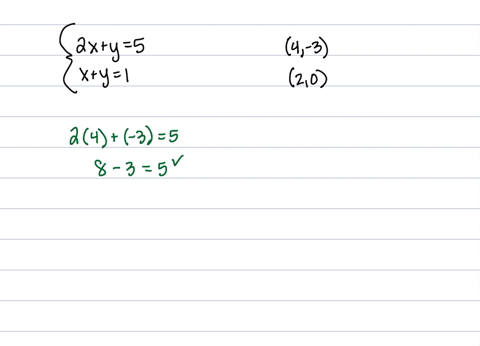 2x+y=5
x+y=1
(4,-3)
(2,0)
2(4)+(-3)=5
8-3=5✓